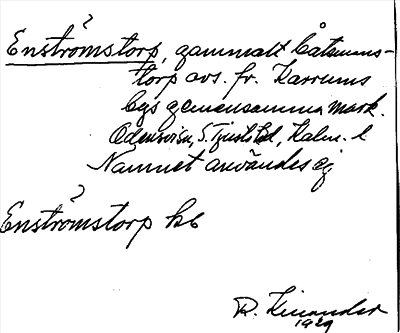 Enströmstorp, gammalt båtsmans-
torp avs. fr. Karrums
bys gemensamma mark.
Odensvi sn, S. Tjusts hd, Kalm. l
Namnet användes ej
Enströmstorp hb
R. Kinander
1929